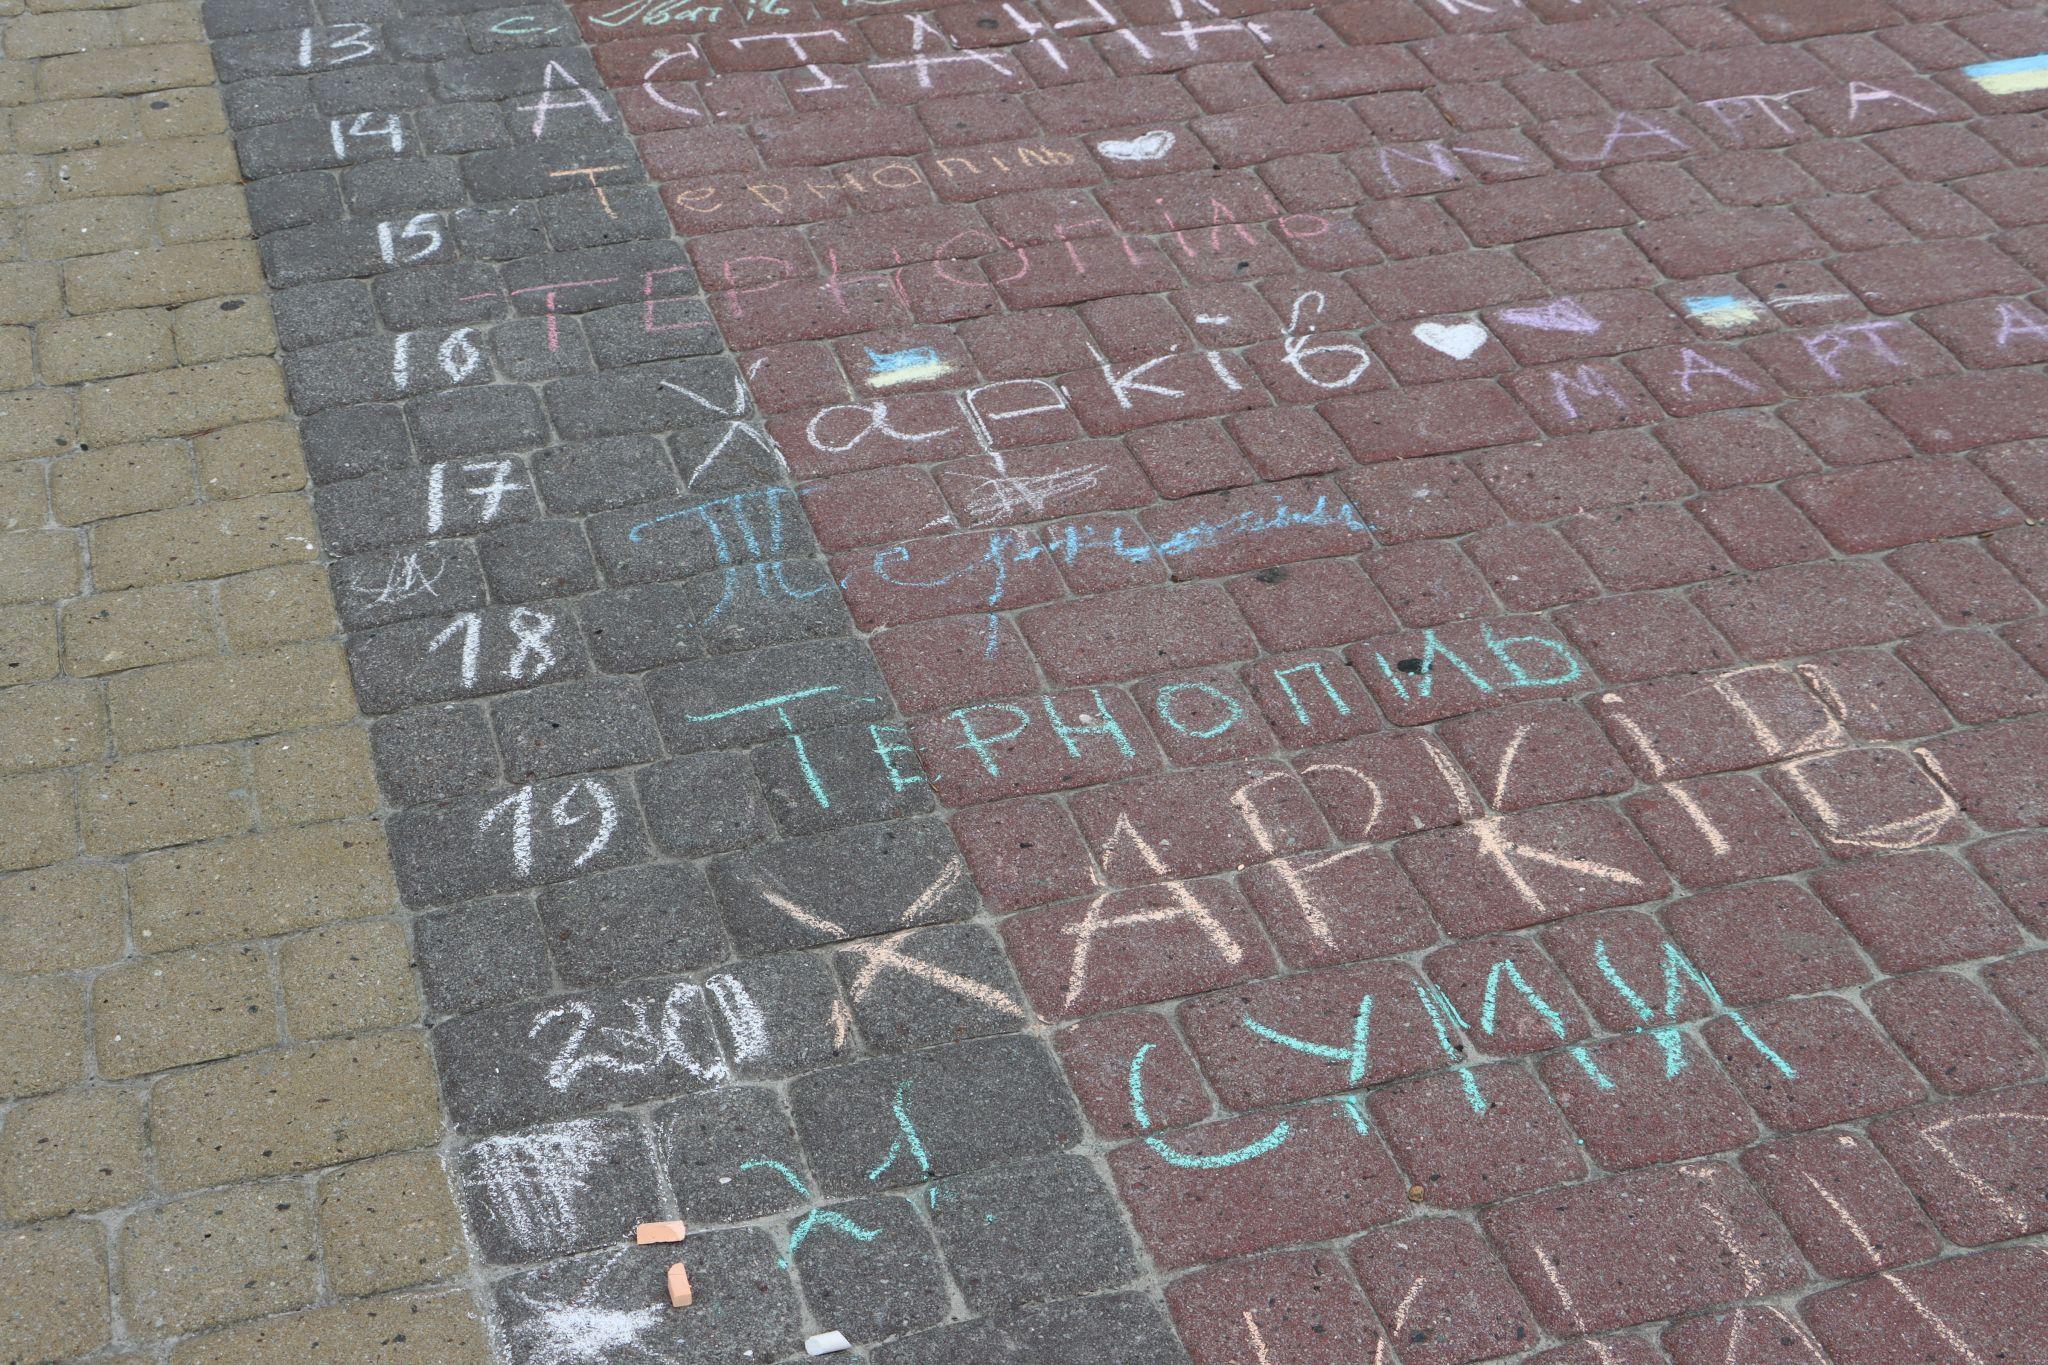 13 АСТАНА
14 Тернопіль МАРТА
15 ТЕРНОПІЛЬ
16 Харків МАРТА
17 Тернопіль
18 ТЕРНОПІЛЬ
19 ХАРКІВ
20 СУМИ
21